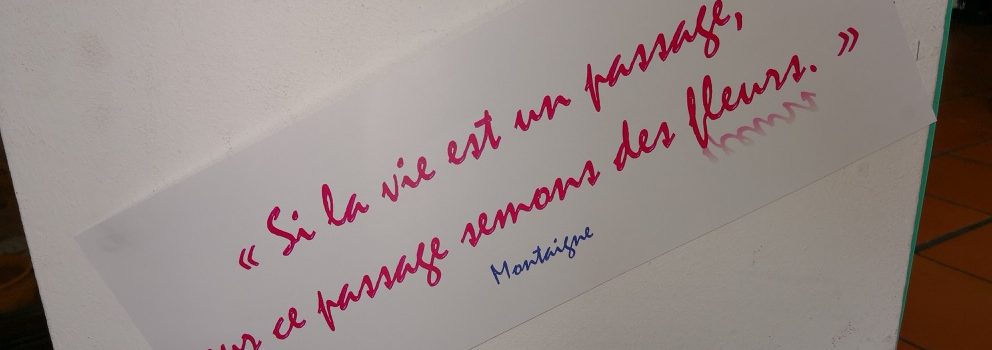 « Si la vie est un passage,
ce passage semons des fleurs. »
Montaigne